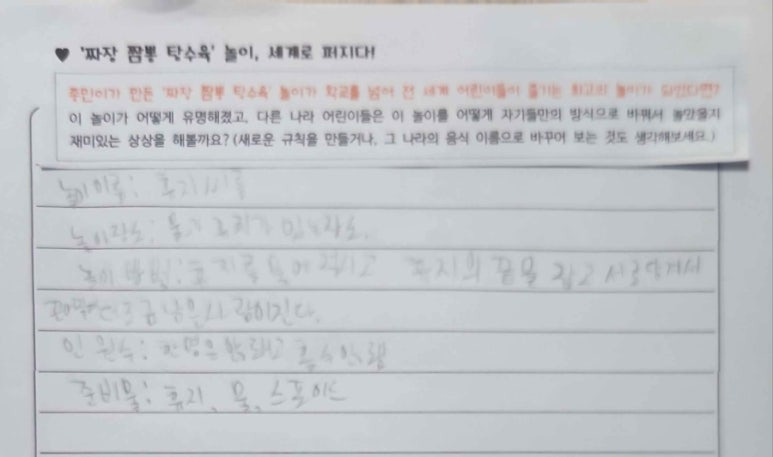 ♥ '짜장 짬뽕 탕수육' 놀이, 세계로 퍼지다!
종민이가 만든 '짜장 짬뽕 탕수육' 놀이가 학교를 넘어 전 세계 어린이들이 즐기는 최고의 놀이가 되었다면?
이 놀이가 어떻게 유명해졌고, 다른 나라 어린이들은 이 놀이를 어떻게 자기들만의 방식으로 바꿔서 놀았을지
재미있는 상상을 해볼까요? (새로운 규칙을 만들거나, 그 나라의 음식 이름으로 바꾸어 보는 것도 생각해보세요.)
놀이이름: 휴지씨름
놀이장소: 물기
놀이 방법: 휴지를 물에 적시고 휴지의 끝을 잡고 서로 당겨서
조금 남은사람이진다.
인원수: 한명은
준비물: 휴지, 물, 스포이드